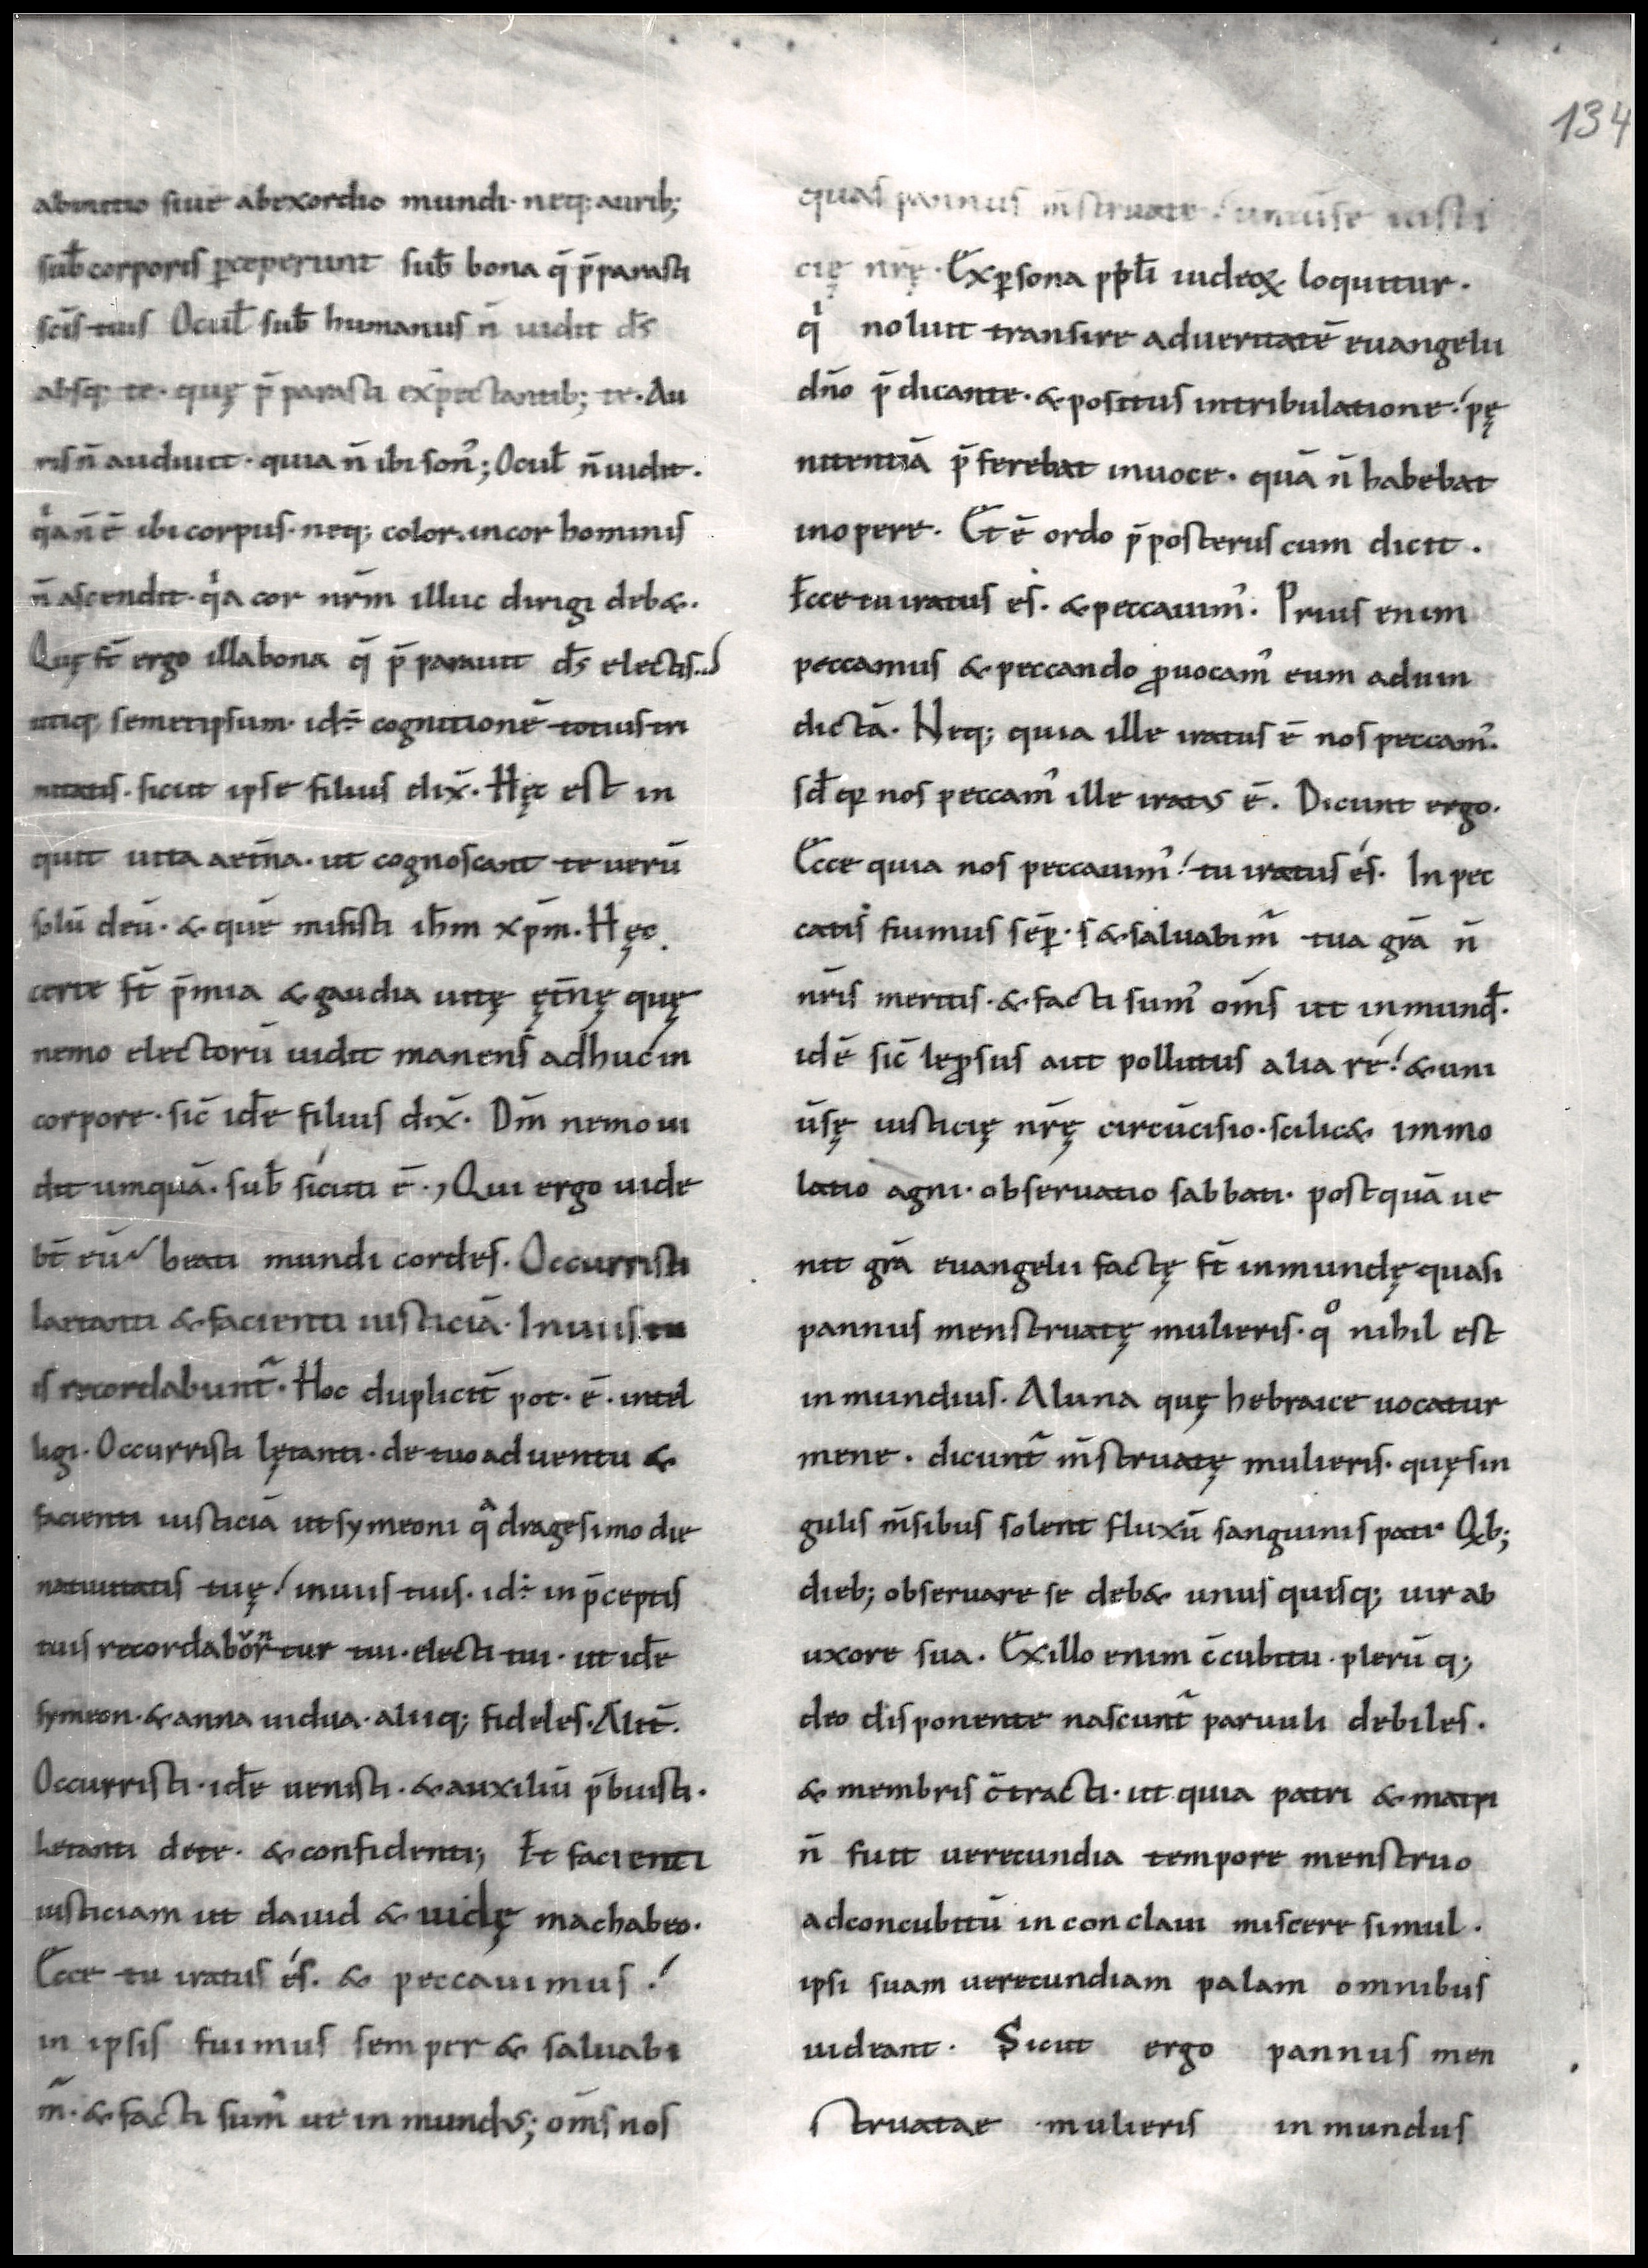 134
abinitio siue abexordio mundi· neq; aurib;
sub̄ corporis ꝑceperunt sub̄ bona q̄ p̄parasti
sc̄is tuis Ocul̄ sub̄ humanus n̄ uidit d̄s
absq; te· quę p̄parasti exp̄ectantib; te· Au
ris n̄ audiuit· quia n̄ ibi son᾽; Ocul̄ n̄ uidit·
qͥa n̄ ē ibi corpus· neq; color· incor hominis
n̄ ascendit· qͥa cor nr̄m illuc dirigi deb&·
Quę st̄ ergo illa bona q̄ p̄parauit d̄s electis
utiq; semetipsum· id· cognitionē totius tri
nitatis· sicut ipse filius dix̄· Hęc est in
quit uita aet̄na· ut cognoscant te uerū
solū deū· & quē misisti ih̄m xp̄m· Hęc
certe st̄ p̄mia & gaudia uitę ęt̄nę quę
nemo electorū uidit manens adhuc in
corpore· sic̄ id̄e filius dix̄· Dm̄ nemo ui
dit umquā· sub̄ sicuti ē·, Qui ergo uide
bt̄ eū beati mundi cordes· Occurristi
laetanti & facienti iusticiā· Inuiis tu
is recordabunt᷑· Hoc duplicit̄ pot· ē· intel
ligi· Occurristi lętanti· de tuo aduentu &
facienti iusticiā ut symeoni qᵃdragesimo die
natiuitatis tuę! inuiis tuis· id· in p̄ceptis
tuis recordabontur tui· electi tui· ut id̄e
symeon· & anna uidua· aliiq; fideles· Alit̄·
Occurristi· id̄e uenisti· & auxiliū p̄buisti·
Letanti dete· & confidenti; Et facienti
iusticiam ut dauid & uidę machabeo·
Ecce tu iratus és· & peccauimus·!
in ipsis fuimus semper & saluabi
m᷑· & facti sum᾽ ut inmundus; om̄s nos
quasi pannus m̄struate! uniūse iusti
cię nr̄ę· Exꝑsona pp̄li iudeoꝝ loquitur·
qͥ noluit transire aduertitatē euangelii
dn̄o p̄dicante· & positus intribulatione·! pę
nitentiā p̄ferebat inuoce· quā n̄ habebat
inopere· Et ē ordo p̄posterus cum dicit·
Ecce tu iratus es· & peccauim᾽· Prius enim
peccamus & peccando ꝓuocam᾽ eum aduin
dictā· Neq; quia ille iratus ē nos peccam᾽·
sd̄ qꝫ nos peccam᾽ ille iratus ē· Dicunt ergo·
Ecce quia nos peccauim᾽! tu iratus és· In pec
catis fuimus sēꝑ· s & saluabim᷑ tua grā n̄
nr̄is meritis· & facti sum᾽ om̄s ut inmund̄·
id ē sic̄ leꝓsus aut pollutus alia ré! & uni
ūsę iusticię nr̄ę circūcisio· scilic& immo
latio agni· obseruatio sabbati· postquā ue
nit grā euangelii factę st̄ inmundę quasi
pannus menstruatę mulieris· qͦ nihil est
inmundius· Aluna quę hebraice uocatur
mene· dicunt᷑ m̄struatę mulieris· quę sin
gulis m̄sibus solent fluxū sanguinis pati· Qꝫb;
dieb; obseruare se deb& unus quisq; uir ab
uxore sua· Exillo enim c̄cubitu· plerūq;
deo disponente nascunt᷑ paruuli debiles·
& membris c̄tracti· ut quia patri & matri
n̄ fuit uerecundia tempore menstruo
adconcubitū inconclaui miscere simul·
ipsi suam uerecundiam palam omnibus
uideant· Sicut ergo pannus men
struatae mulieris inmundus